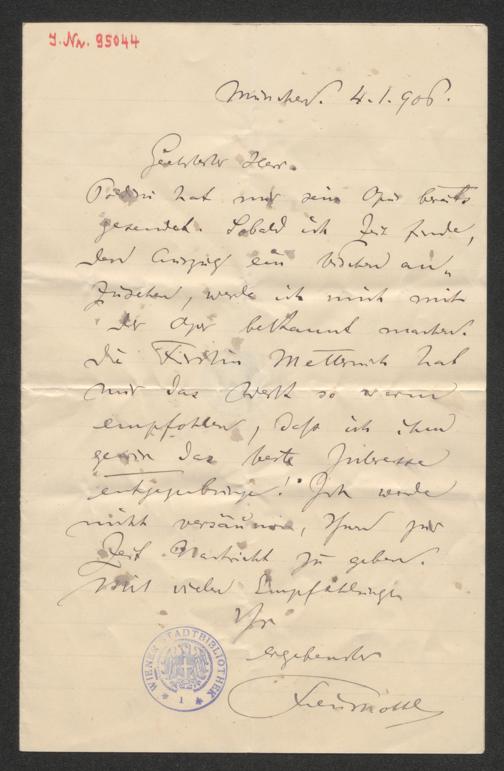 J. Nr. 95044
München. 4. I. 906.
Geehrtester Herr.
Poldini hat mir seine Oper bereits
gesendet. Sobald ich Zeit finde,
den Auszug ein bischen an-
zusehen, werde ich mich mit
der Oper bekannt machen.
Die Fürstin Metternich hat
mir das Werk so warm
empfohlen, daß ich ihm
gewiss das beste Interesse
entgegenbringe! Ich werde
nicht versäumen, Ihnen zur
Zeit Nachricht zu geben.
Mit vielen Empfehlungen
Ihr
ergebenster
Felix Mottl
WIENER STADTBIBLIOTHEK
1